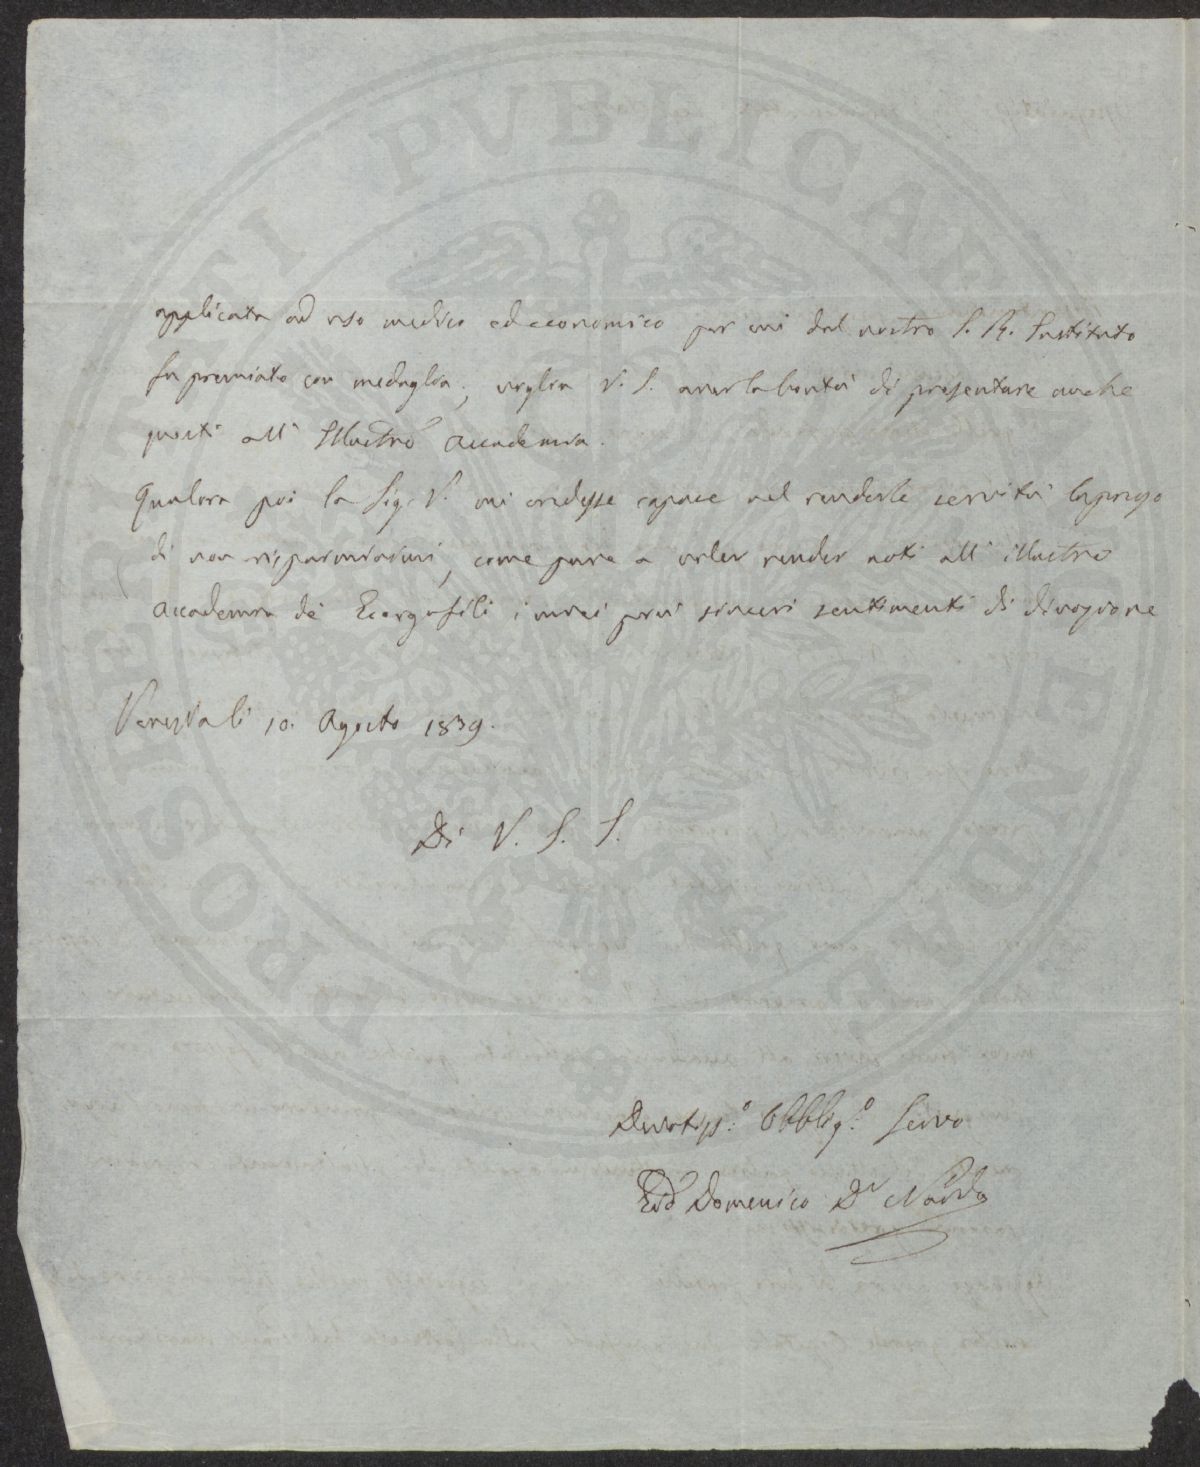 PROSPERITATI PUBLICAE AUGENDAE
applicata ad uso medico ed economico per cui dal nostro I. R. Instituto
fu premiato con medaglia; voglia V. S. aver la bontà di presentare anche
questi all' Illustre Accademia.
Qualora poi la Sig. V. mi credesse capace nel renderle servitù la prego
di non risparmiarmi, come pure a voler render noti all' illustre
Accademia de' Georgofili i miei più sinceri sentimenti di divozione
Venezia li 10. Agosto 1839.
Di V. S. S.
Devotiss.º Obblig.º Servo
Domenico Dr Nardo